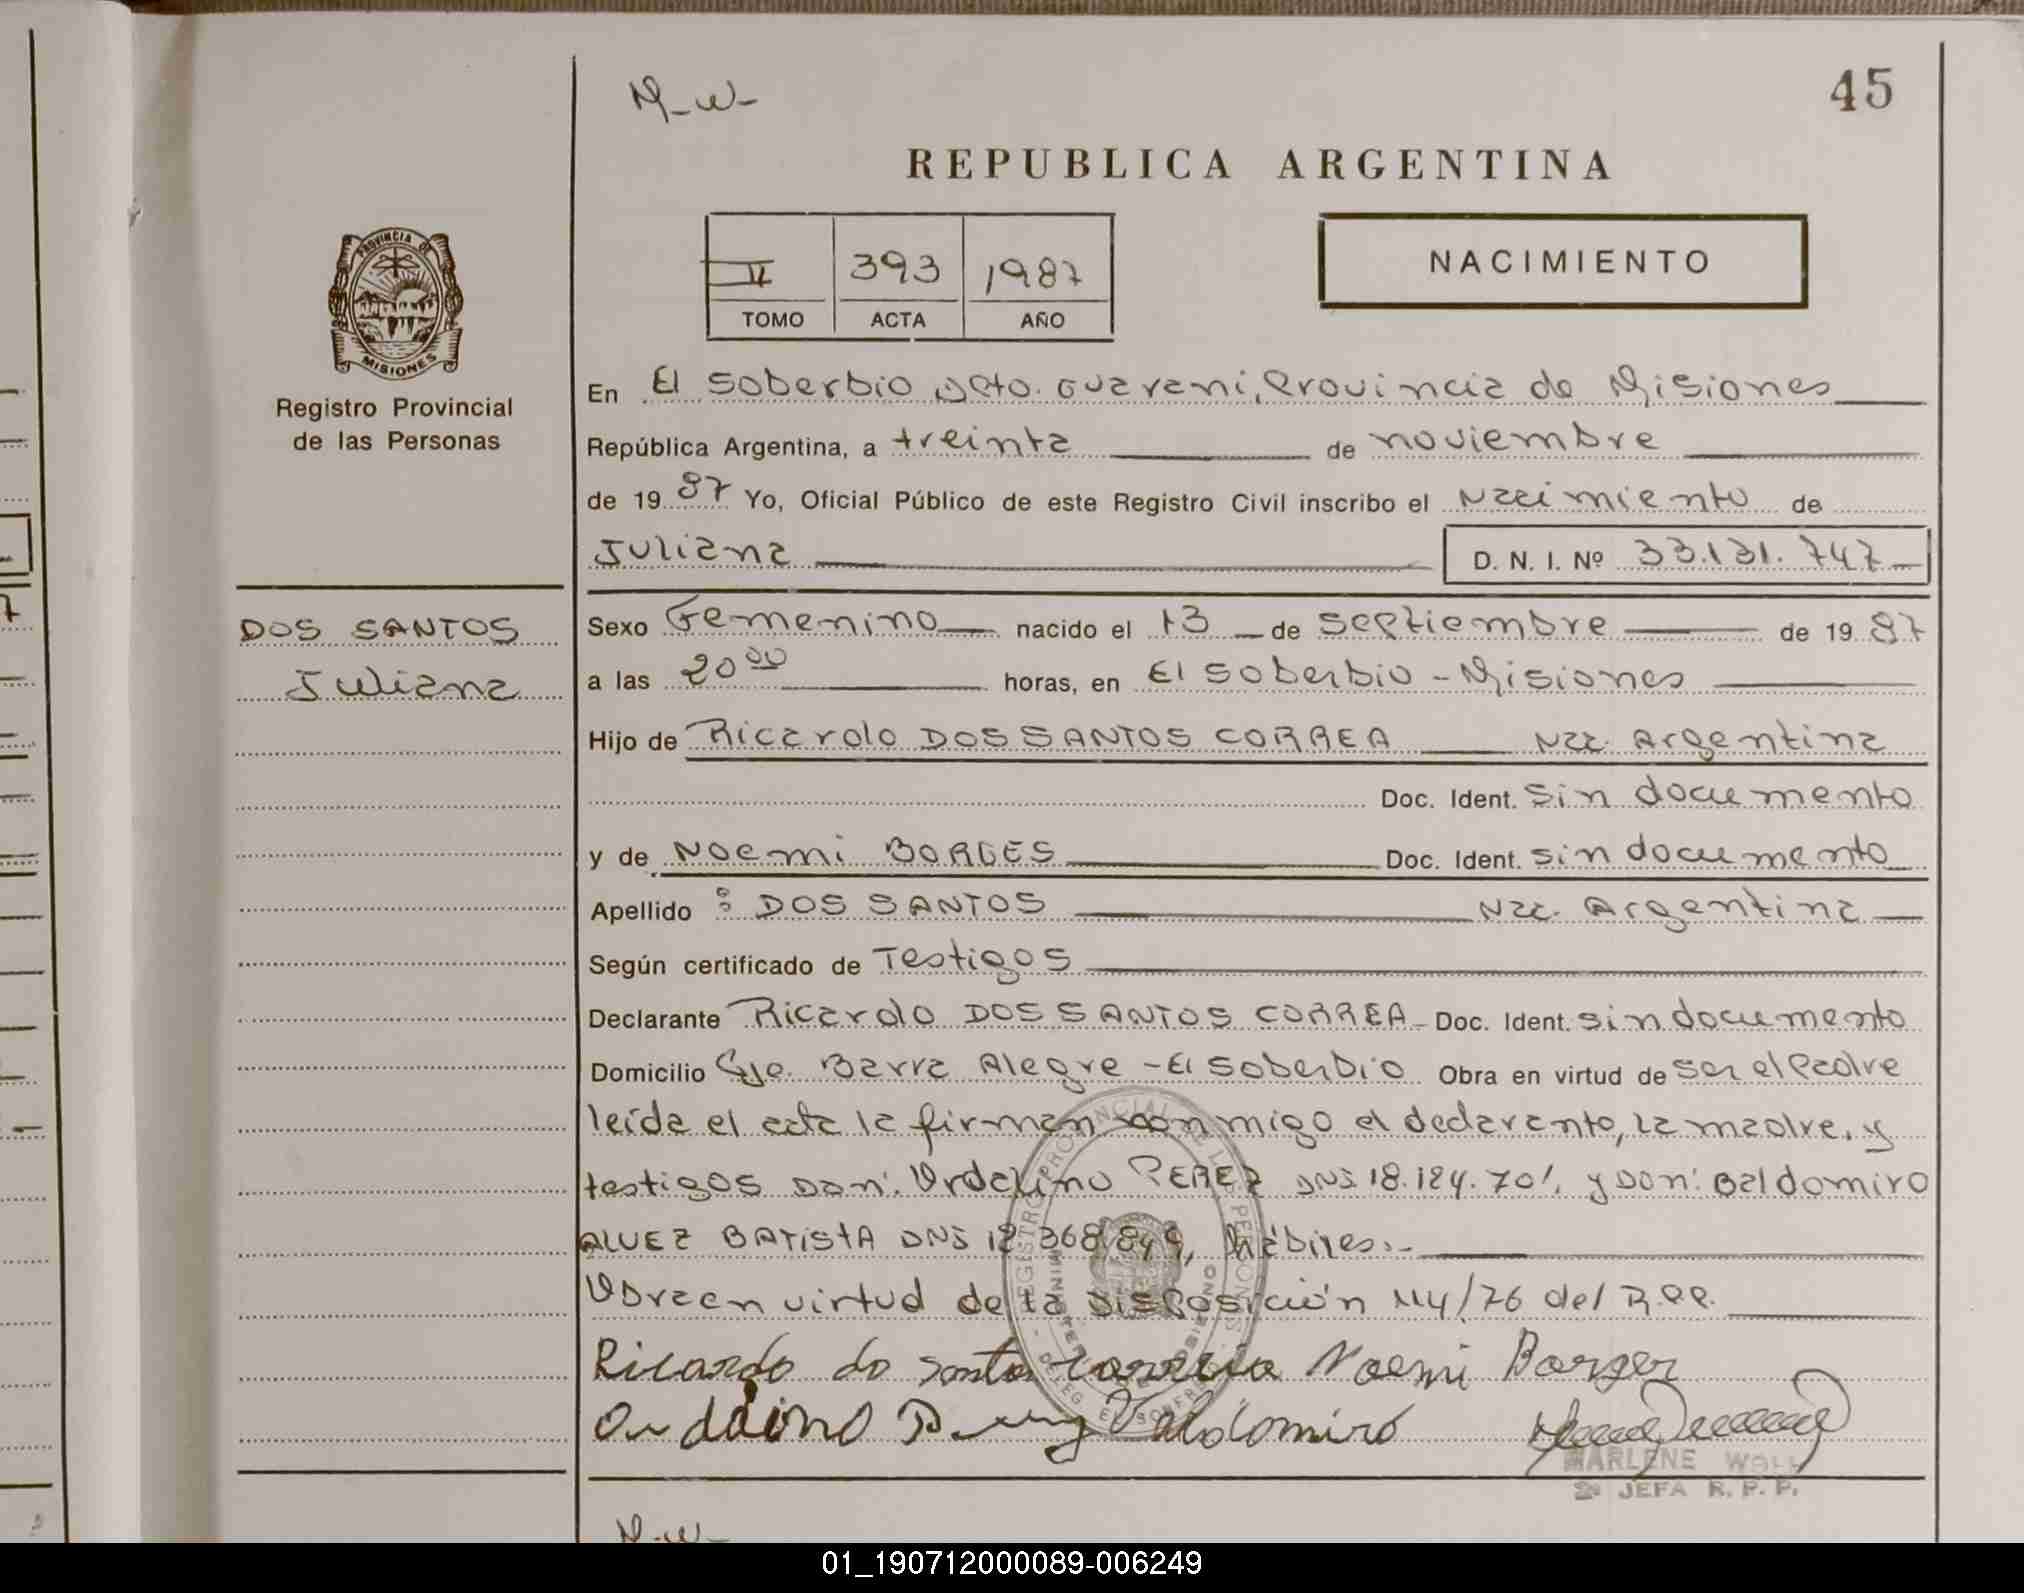 M-W-
45
REPUBLICA ARGENTINA
II 393 1987
TOMO ACTA AÑO
NACIMIENTO
PROVINCIA DE
MISIONES
Registro Provincial
de las Personas
DOS SANTOS
Juliana
En El Soberbio Dpto. Guarani, Provincia de Misiones
República Argentina, a treinta de noviembre
de 1987 Yo, Oficial Público de este Registro Civil inscribo el Nacimiento de
Juliana D. N. I. Nº 33.131.747
Sexo Femenino nacido el 13 de septiembre de 1987
a las 20 00 horas, en El Soberbio - Misiones
Hijo de Ricardo DOS SANTOS CORREA Nac. Argentina
Doc. Ident. sin documento
y de Noemi BORGES Doc. Ident. sin documento
Apellido : DOS SANTOS Nac. Argentina
Según certificado de Testigos
Declarante Ricardo DOS SANTOS CORREA - Doc. Ident. sin documento
Domicilio Cje. Barra Alegre - El Soberbio Obra en virtud de ser el Padre
leída el acta la firman conmigo el declarante, la madre, y
testigos Don: Urdelino PEREZ DNI 18.124.701, y Don: Baldomiro
ALVEZ BATISTA DNI 12.368.849, hábiles.-
Obra en virtud de la Disposición 114/76 del R.P.P.
Ricardo do santo correia Noemi Borger
Valdomiro
MARLENE WOLL
2a JEFA R. P. P.
M-W-
01_190712000089-006249